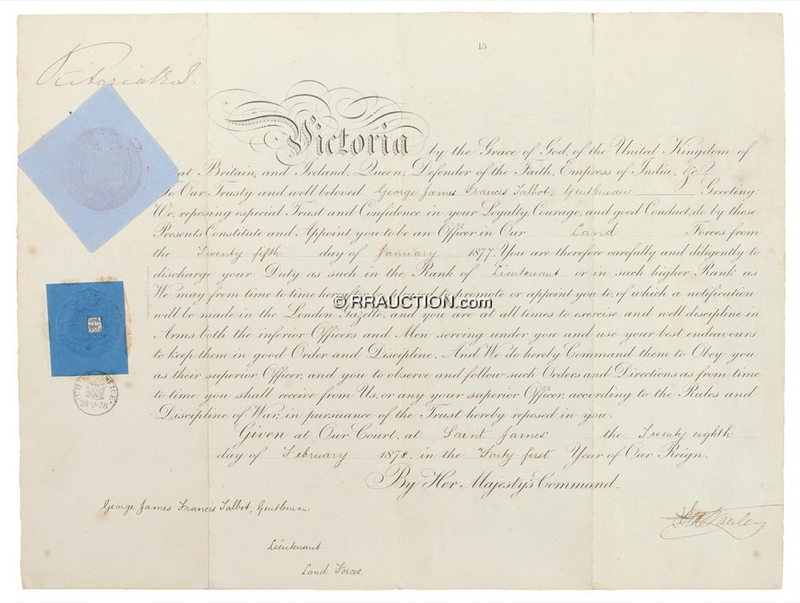 13
Victoria R I.
Victoria by the Grace of God, of the United Kingdom of
at Britain, and Ireland, Queen, Defender of the Faith, Empress of India, &c.
To Our Trusty and well beloved George James Francis Talbot, Gentleman Greeting:
We, reposing especial Trust and Confidence in your Loyalty, Courage, and good Conduct, do by these
Presents Constitute and Appoint you to be an Officer in Our Land Forces from
the Twenty fifth day of January 1877. You are therefore carefully and diligently to
discharge your Duty as such in the Rank of Lieutenant or in such higher Rank as
We may from time to time hereafter be pleased to promote or appoint you to, of which a notification
© RRAUCTION.com
will be made in the London Gazette, and you are at all times to exercise and well discipline in
Arms both the inferior Officers and Men serving under you and use your best endeavours
to keep them in good Order and Discipline. And We do hereby Command them to Obey you
as their superior Officer, and you to observe and follow such Orders and Directions as from time
to time you shall receive from Us, or any your superior Officer, according to the Rules and
Discipline of War, in pursuance of the Trust hereby reposed in you.
Given at Our Court, at Saint James' the Twenty eighth
day of February 1878 in the Forty first Year of Our Reign.
By Her Majesty's Command.
George James Francis Talbot, Gentleman
Lieutenant
Land Forces.